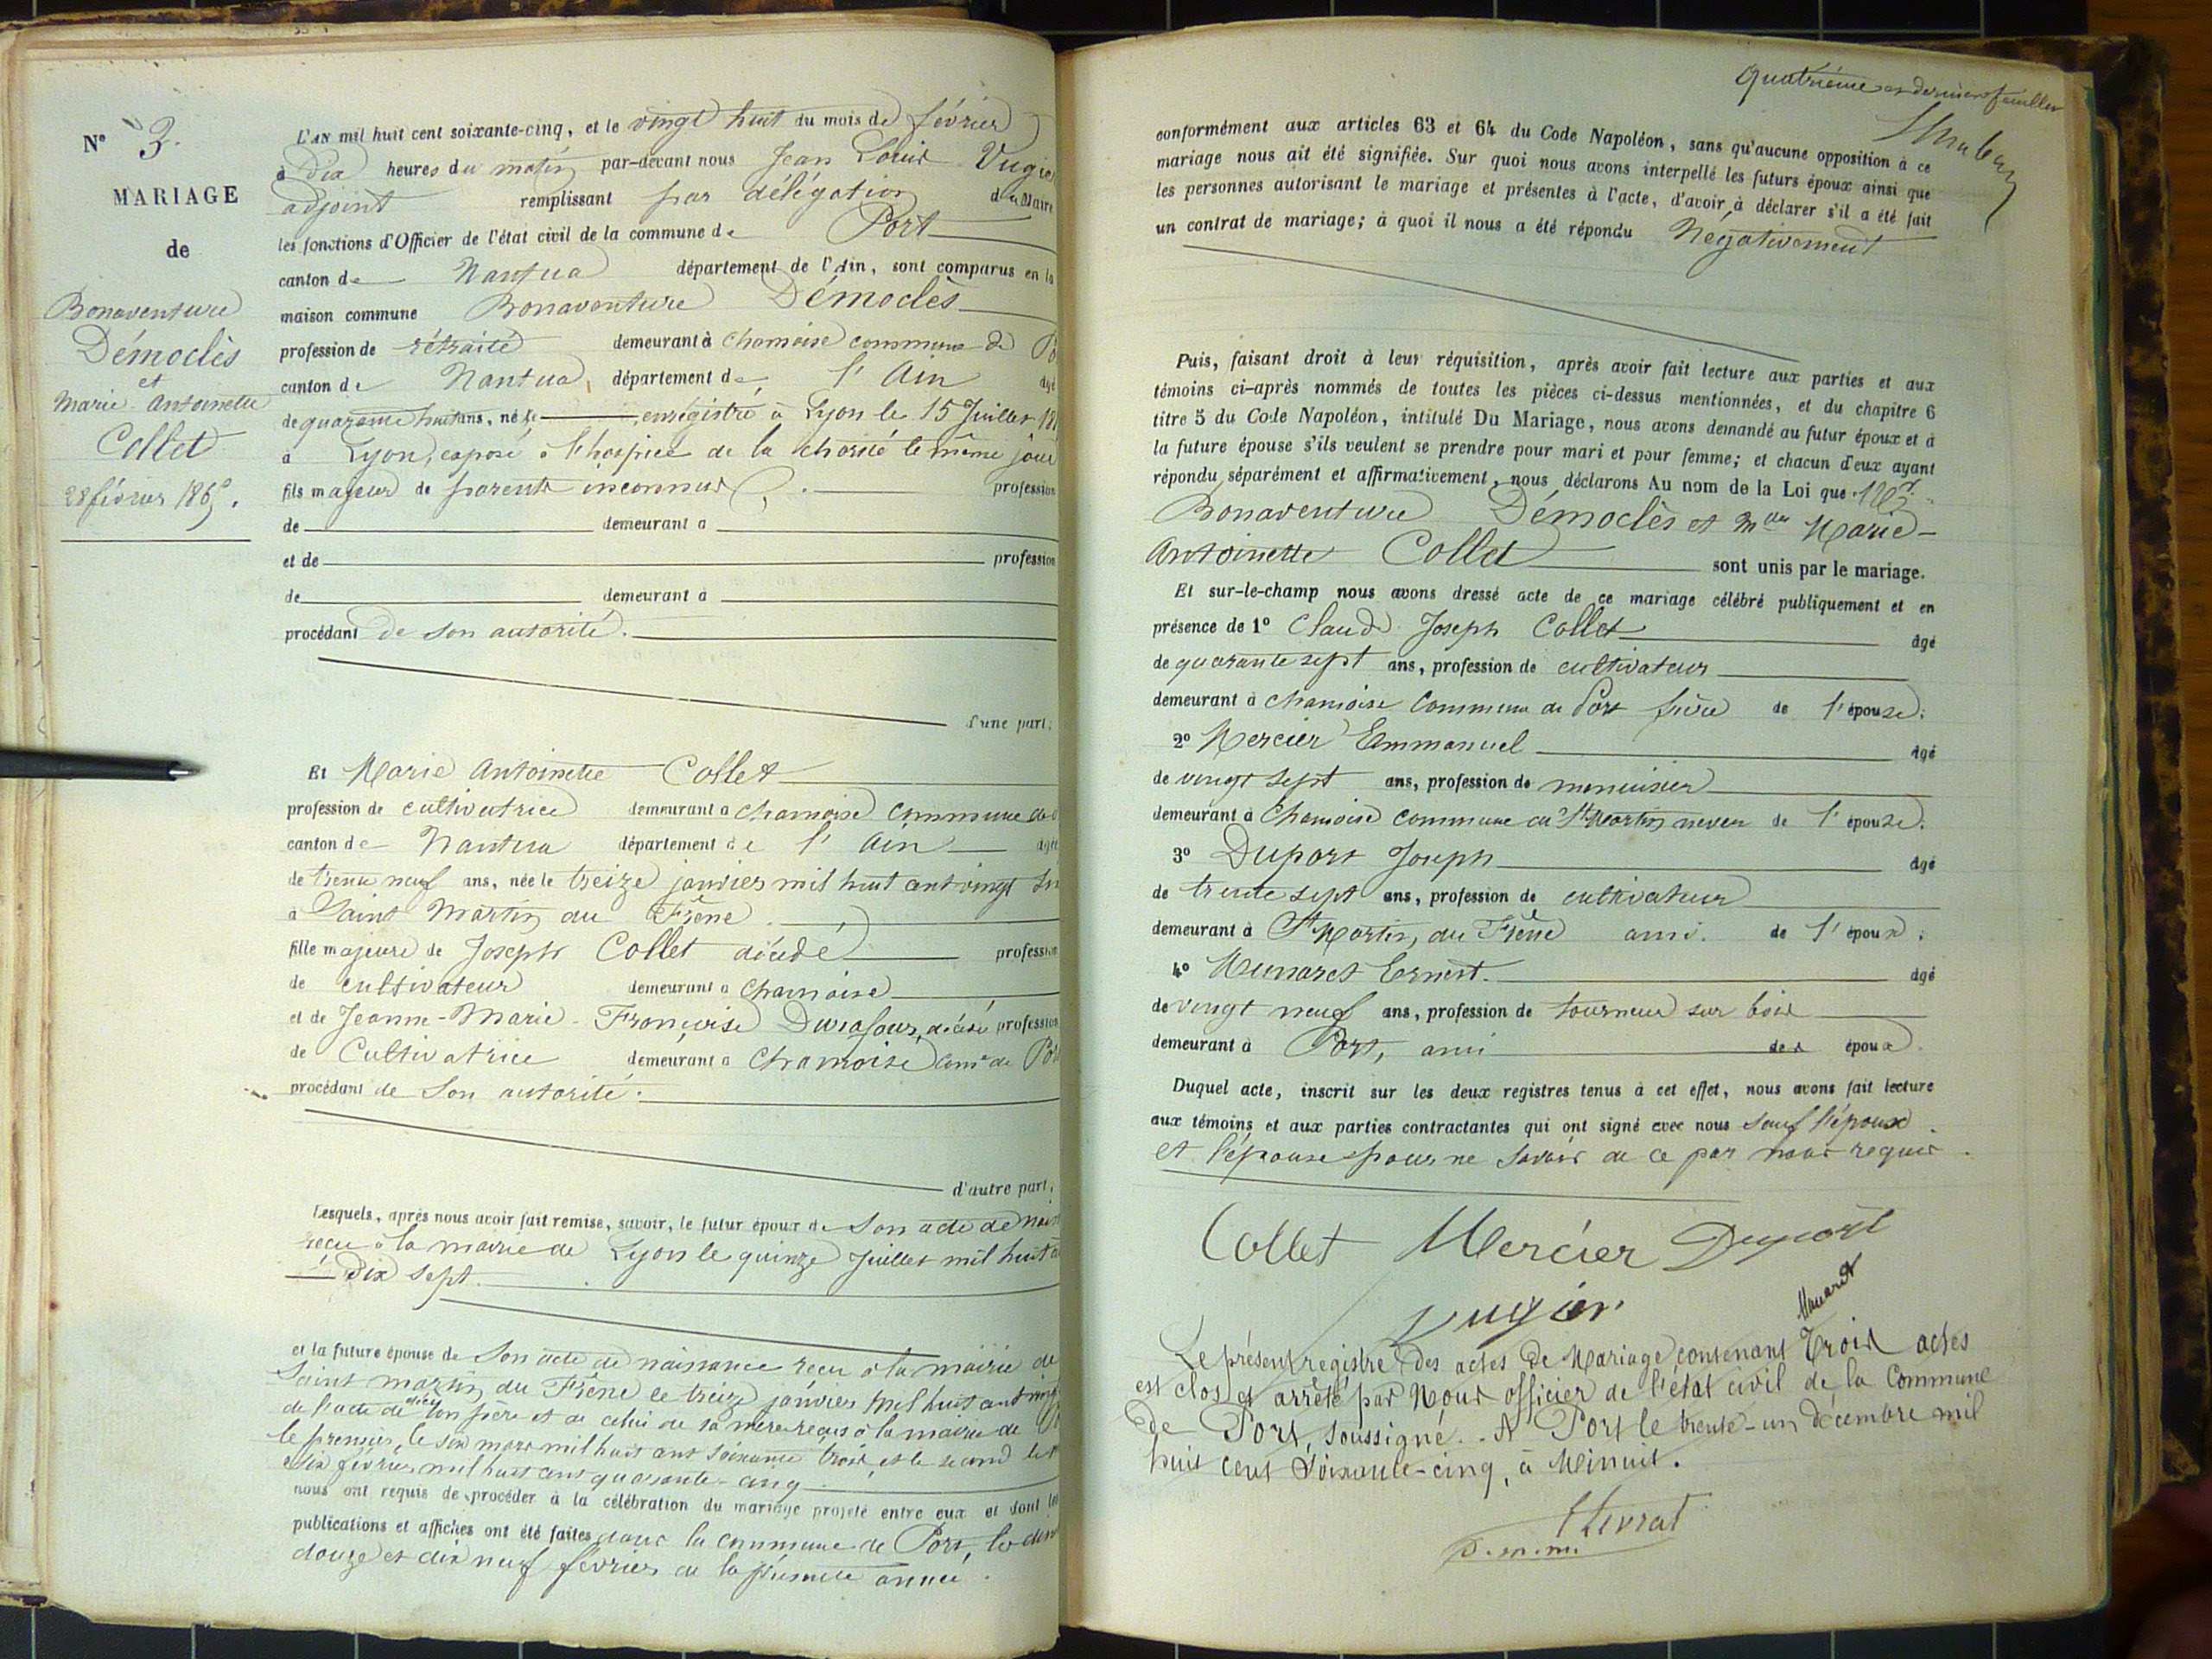 N° 3.
MARIAGE
de
Bonaventure
Démoclès
et
Marie Antoinette
Collet
28 février 1865.
L'AN mil huit cent soixante-cinq, et le vingt huit du mois de février
à dix heures du matin par-devant nous Jean Louis Vugier
adjoint remplissant par délégation du Maire
les fonctions d'Officier de l'état civil de la commune de Port
canton de Nantua département de l'Ain, sont comparus en la
maison commune Bonaventure Démoclès
profession de rétraité demeurant à Chamoise commune de Po
canton de Nantua, département de l'Ain âgé
de quarante huit ans, né le enrégistré à Lyon le 15 Juillet 18
à Lyon, exposé à l'hospice de la charité le même jour
fils majeur de parents inconnus profession
de demeurant à
et de profession
de demeurant à
procédant de son autorité.
d'une part;
Et Marie Antoinette Collet
profession de cultivatrice demeurant à Chamoise commune de
canton de Nantua département de l'Ain âgée
de trente neuf ans, née le treize janvier mil huit cent vingt
à Saint Martin du Frêne
fille majeure de Joseph Collet décédé profession
de cultivateur demeurant à Chamoise
et de Jeanne-Marie-Françoise Durafour, décédé profession
de Cultivatrice demeurant à Chamoise Comne de Por
procédant de Son autorité.
d'autre part;
Lesquels, après nous avoir fait remise, savoir, le futur époux de Son acte de nais
reçu à la mairie de Lyon le quinze Juillet mil huit c
dix sept.
et la future épouse de Son acte de naissance reçu à la mairie de
Saint martin du Frêne le treize janvier mil huit cent ving
de l'acte de décès son père et de celui de sa mère reçus à la mairie de
le premier, le six mars mil huit cent soixante trois, et le second le
six février mil huit cent quarante-cinq
nous ont requis de procéder à la célébration du mariage projeté entre eux et dont les
publications et affiches ont été faites dans la commune de Port, les dim
douze et dix neuf février de la présente année.
Quatrième et dernier feuillet
conformément aux articles 63 et 64 du Code Napoléon, sans qu'aucune opposition à ce
mariage nous ait été signifiée. Sur quoi nous avons interpellé les futurs époux ainsi que
les personnes autorisant le mariage et présentes à l'acte, d'avoir à déclarer s'il a été fait
un contrat de mariage; à quoi il nous a été répondu Négativement
Puis, faisant droit à leur réquisition, après avoir fait lecture aux parties et aux
témoins ci-après nommés de toutes les pièces ci-dessus mentionnées, et du chapitre 6
titre 5 du Code Napoléon, intitulé Du Mariage, nous avons demandé au futur époux et à
la future épouse s'ils veulent se prendre pour mari et pour femme; et chacun d'eux ayant
répondu séparément et affirmativement, nous déclarons Au nom de la Loi que
Bonaventure Démoclès et Mlle Marie-
Antoinette Collet sont unis par le mariage.
Et sur-le-champ nous avons dressé acte de ce mariage célébré publiquement et en
présence de 1° Claude Joseph Collet âgé
de quarante sept ans, profession de cultivateur
demeurant à Chamoise Commune de Port frère de l'épouse;
2° Mercier Emmanuel âgé
de vingt sept ans, profession de menuisier
demeurant à Chamoise commune de St Martin neveu de l'épouse.
3° Duport Joseph âgé
de trente sept ans, profession de cultivateur
demeurant à St Martin, du Frêne ami. de l'époux;
4° Munaret Ernest. âgé
de vingt neuf ans, profession de tourneur sur bois
demeurant à Port, ami de époux.
Duquel acte, inscrit sur les deux registres tenus à cet effet, nous avons fait lecture
aux témoins et aux parties contractantes qui ont signé avec nous sauf l'époux
et l'épouse pour ne savoir de ce par nous requis.
Collet Mercier Duport
Munaret
Vugier
Le présent registre des actes de Mariage, contenant Trois actes
est clos et arrêté par Nous officier de l'état civil de la Commune
de Port, soussigné. A Port le trente-un décembre mil
huit cent soixante-cinq, à Minuit.